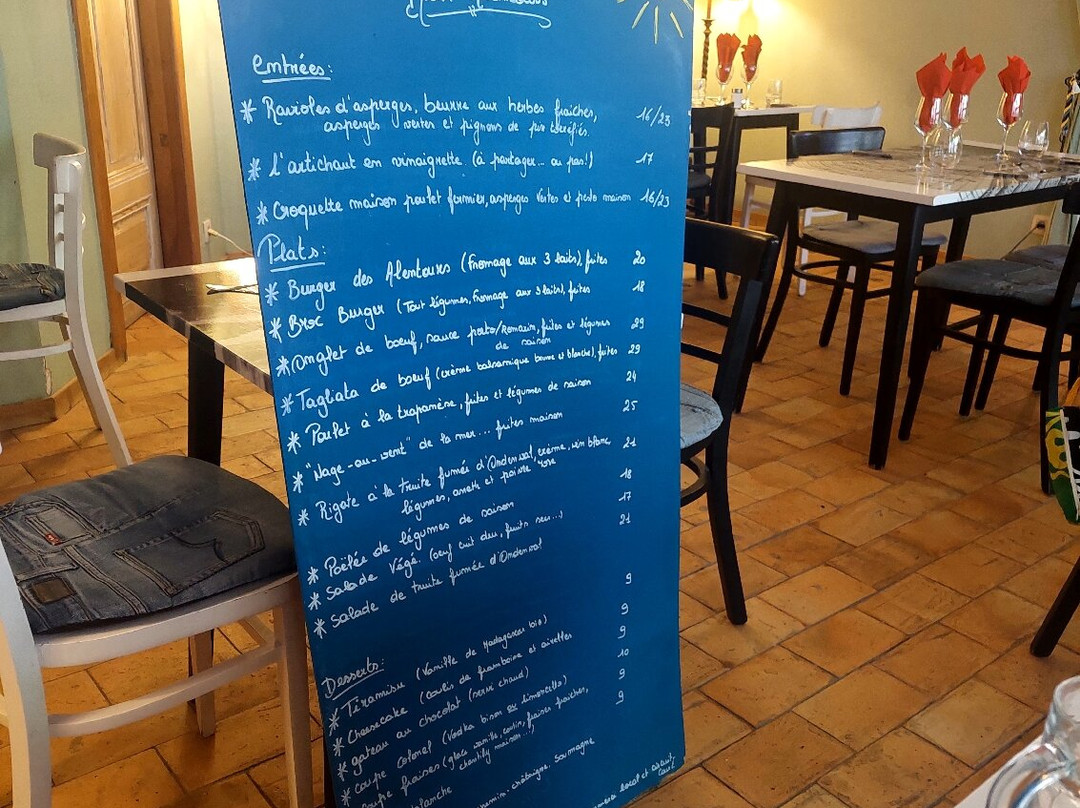 Entrées:
* Ravioles d'asperges, beurre aux herbes fraîches, 16/23
asperges vertes et pignons de pin torréfiés.
* L'artichaut en vinaigrette (à partager... ou pas!) 17
* Croquette maison poulet fermier, asperges vertes et pesto maison 16/23
Plats:
* Burger des Alentours (fromage aux 3 laits), frites 20
* Broc Burger (Tout légumes, fromage aux 3 laits), frites 18
* Onglet de boeuf, sauce porto/romarin, frites et légumes 29
de saison
* Tagliata de boeuf (crème balsamique brune et blanche), frites 29
* Poulet à la trapanèse, frites et légumes de saison 24
* "Nage-au-vent" de la mer... frites maison 25
* Rigate à la truite fumée d'Ondenval, crème, vin blanc, 21
légumes, aneth et poivre rose
* Poêlée de légumes de saison 18
* Salade Végé. (oeuf cuit dur, fruits secs...) 17
* Salade de truite fumée d'Ondenval 21
Desserts:
* Tiramisu (Vanille de Madagascar bio) 9
* Cheesecake (coulis de framboise et airelles 9
* gâteau au chocolat (servi chaud) 9
* coupe colonel (Vodka bison ou limoncello) 10
* coupe fraises (glace vanille, coulis, fraises fraîches, 9
chantilly maison...)
blanche 9
Soumagne
local et